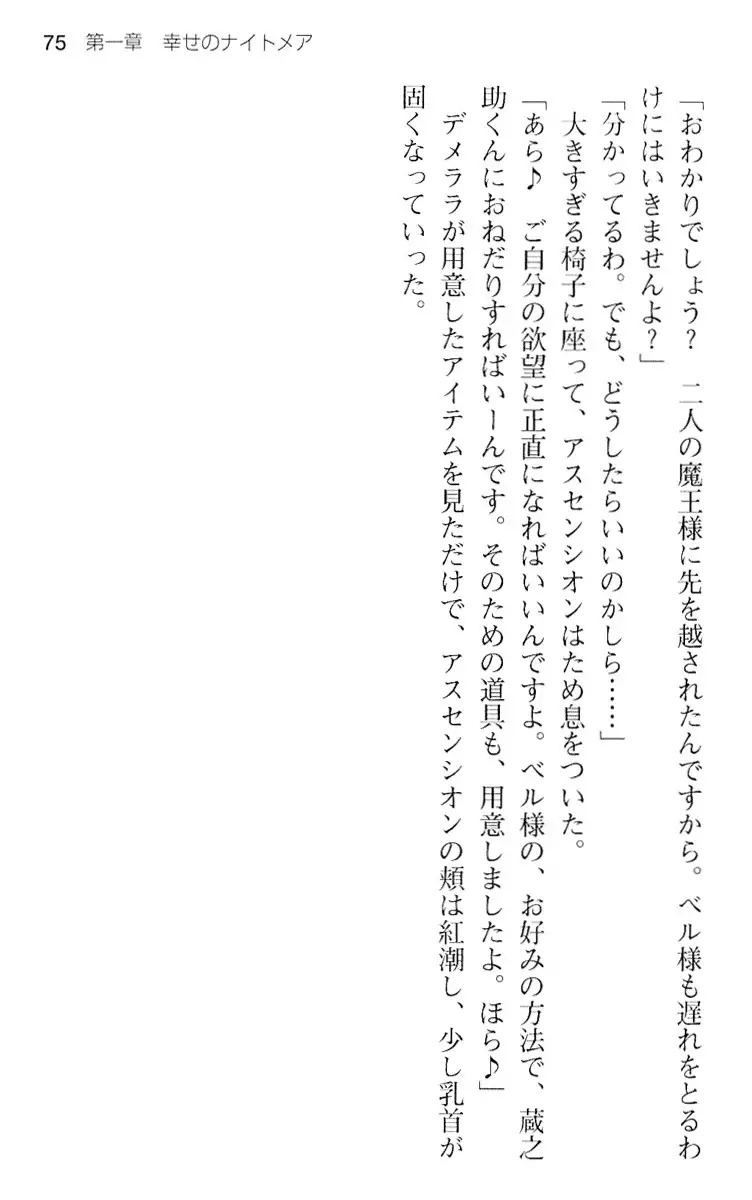 75　第一章　幸せのナイトメア
「おわかりでしょう？　二人の魔王様に先を越されたんですから。ベル様も遅れをとるわ
けにはいきませんよ？」
「分かってるわ。でも、どうしたらいいのかしら……」
　大きすぎる椅子に座って、アスセンシオンはため息をついた。
「あら♪　ご自分の欲望に正直になればいいんですよ。ベル様の、お好みの方法で、蔵之
助くんにおねだりすればいーんです。そのための道具も、用意しましたよ。ほら♪」
　デメララが用意したアイテムを見ただけで、アスセンシオンの頬は紅潮し、少し乳首が
固くなっていった。